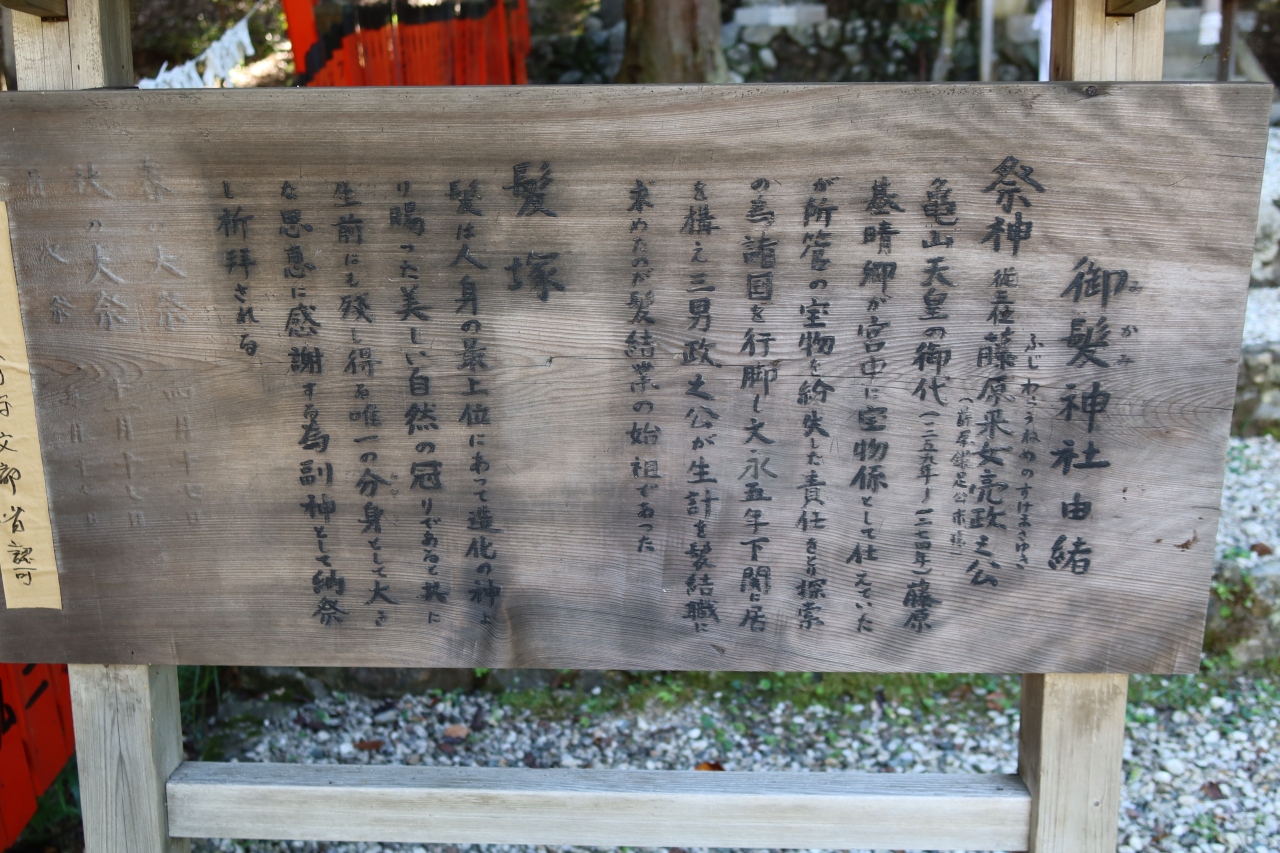 御髪神社由緒
みかみ
祭神 従三位藤原采女亮政之公
ふじわらうねめのすけまさゆき
亀山天皇の御代(一二五九年〜一二七四年)藤原
基晴卿が宮中に宝物係として仕えていた
が所管の宝物を紛失した責任をとり探索
の為諸国を行脚し文永五年下関に居
を構え三男政之公が生計を髪結職に
求めたのが髪結業の始祖であった
髪塚
髪は人身の最上位にあって造化の神よ
り賜った美しい自然の冠りであると共に
生前にも残し得る唯一の分身として大き
な恩恵に感謝する為副神として納祭
し祈拝される
春の大祭 四月十七日
秋の大祭 十一月十七日
文部省認可